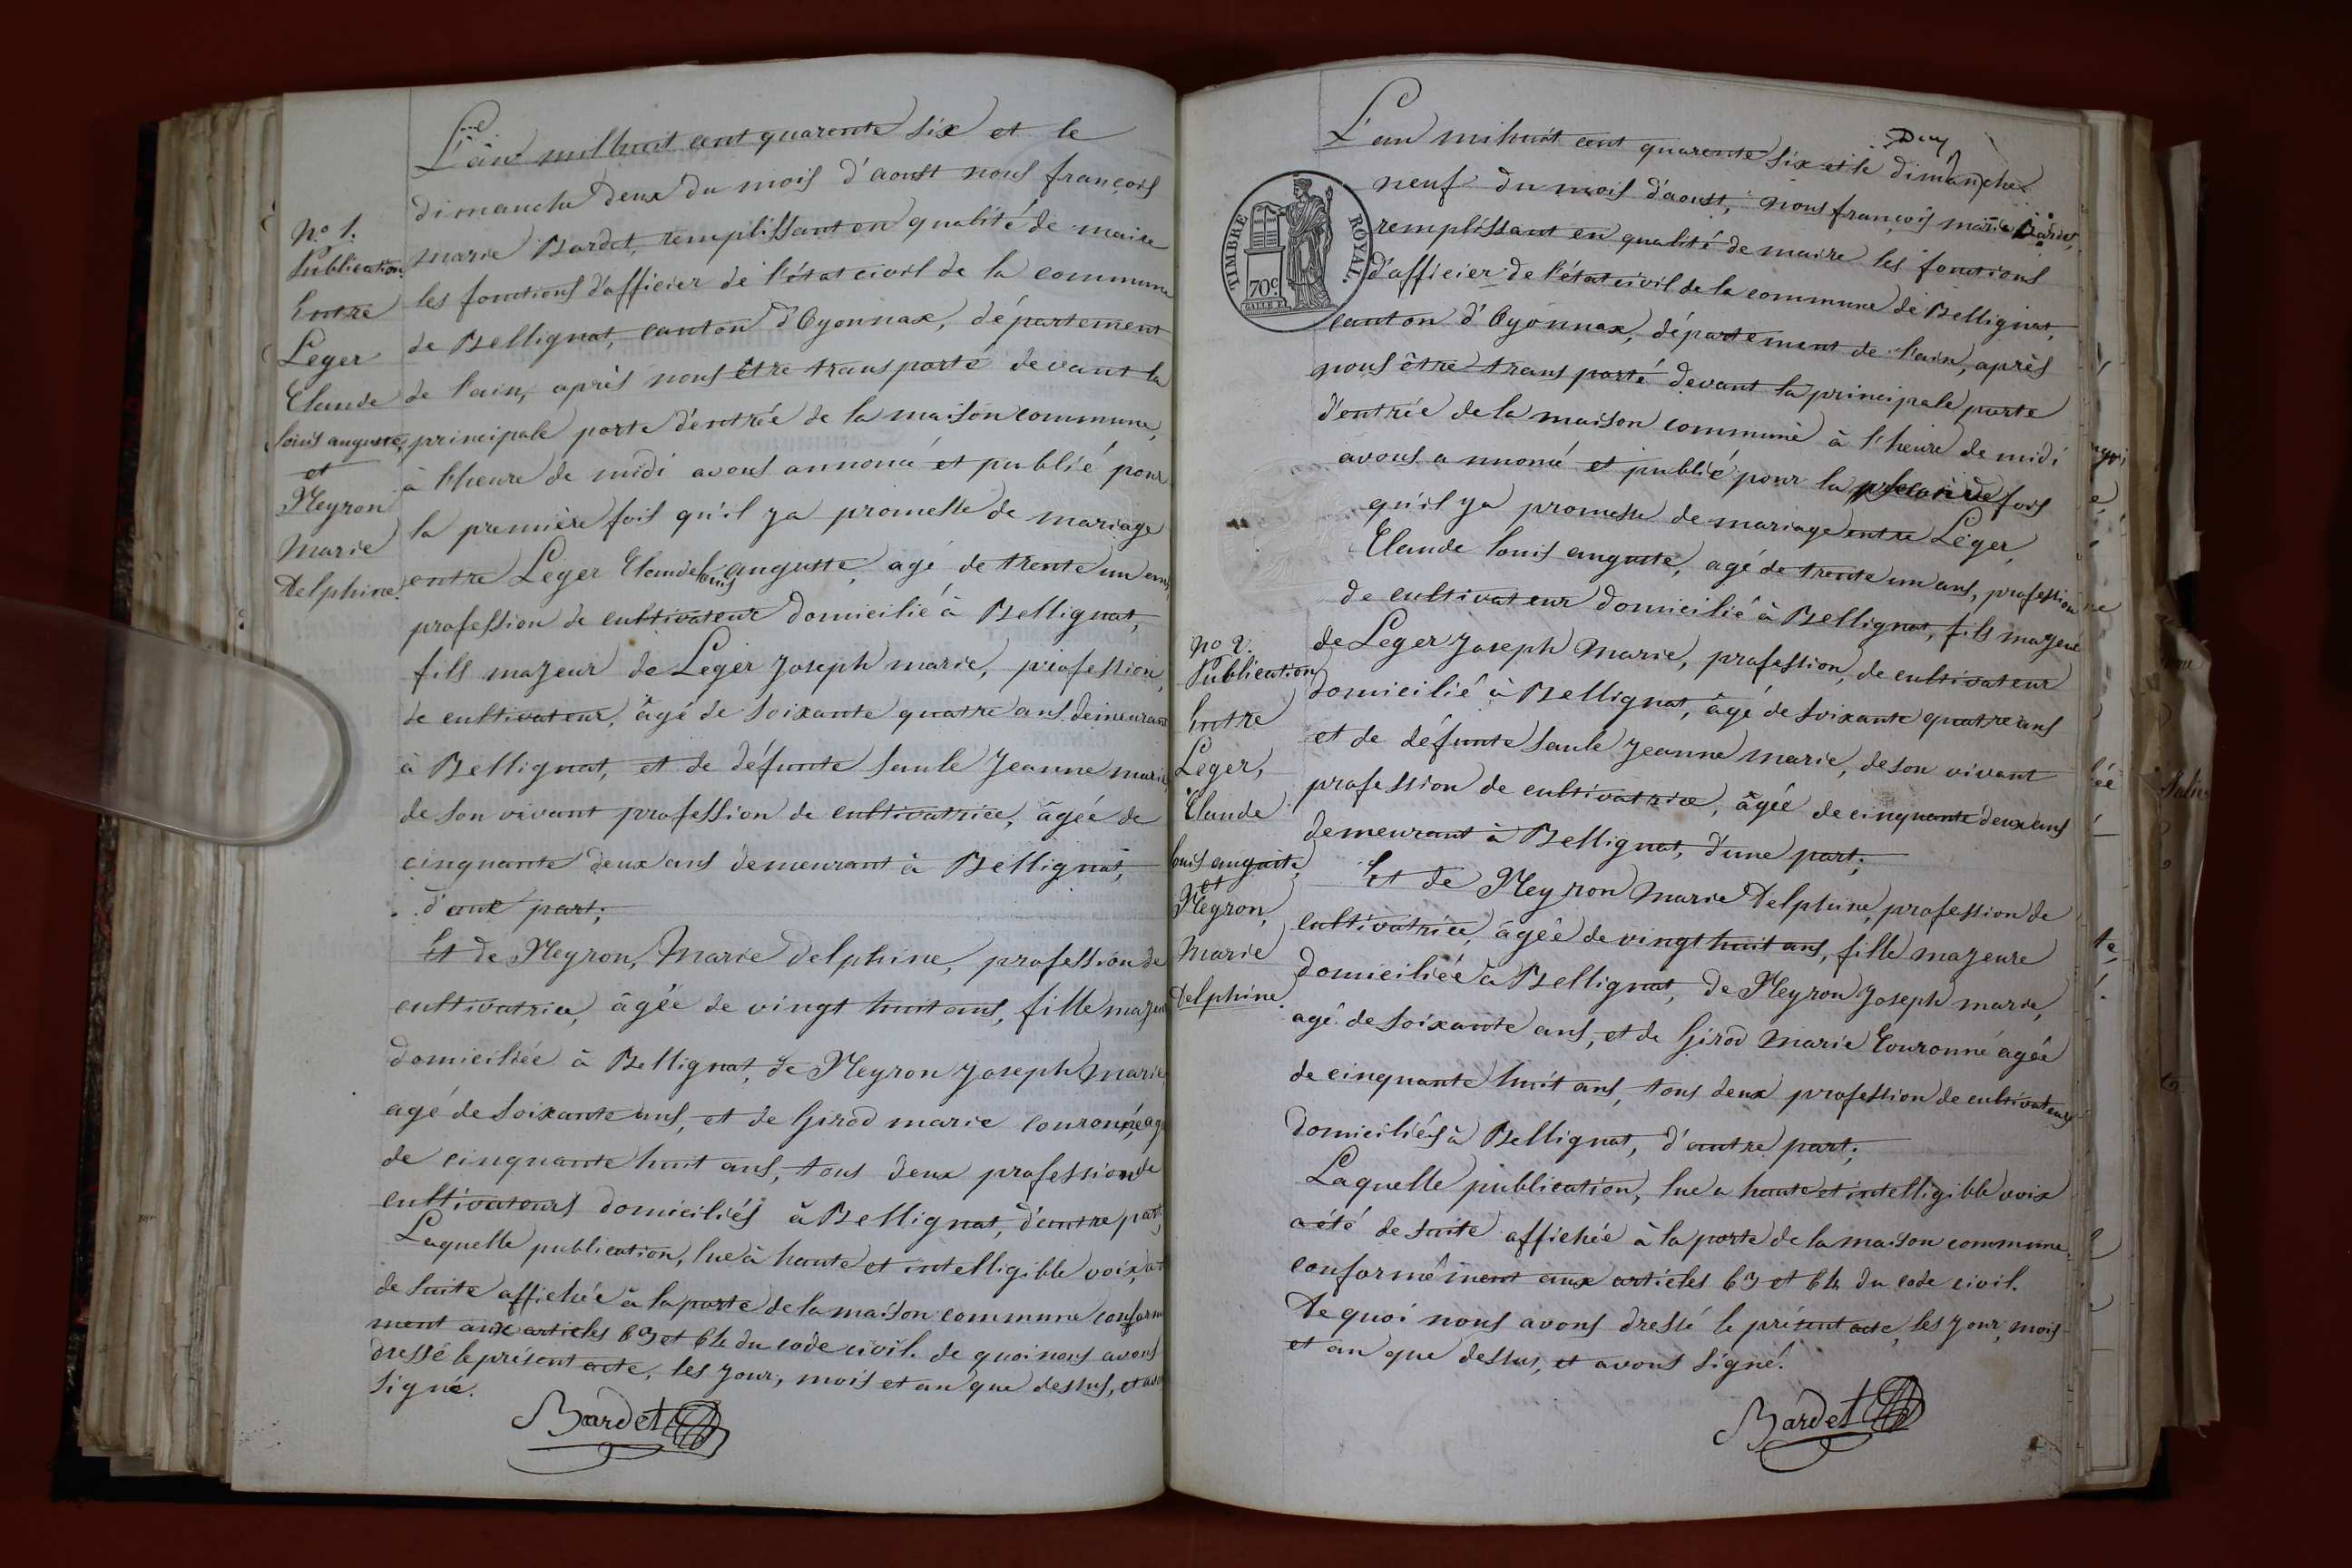 L'an mil huit cent quarente six et le
dimanche deux du mois d'aoust nous françois
marie Bardet, remplissant en qualité de maire
les fonctions d'officier de l'état civil de la commune
de Bellignat, canton d'Oyonnax, département
de l'ain, après nous être transporté devant la
principale porte d'entrée de la maison commune,
à l'heure de midi avons annoncé et publié pour
la première fois qu'il y a promesse de mariage
entre Leger Claude louis auguste, agé de trente un ans,
profession de cultivateur domicilié à Bellignat,
fils majeur de Leger Joseph marie, profession
de cultivateur, âgé de soixante quatre ans demeurant
à Bellignat, et de défunte Saule Jeanne marie,
de son vivant profession de cultivatrice, âgée de
cinquante deux ans demeurant à Bellignat,
d'une part;
Et de Meyron, Marie Delphine, profession de
cultivatrice, âgée de vingt huit ans, fille majeure
domiciliée à Bellignat, de Meyron Joseph Marie,
agé de soixante ans, et de Girod marie couronné, ag
de cinquante huit ans, tous deux profession de
cultivateurs domiciliés à Bellignat, d'autre part,
Laquelle publication, lue à haute et intelligible voix, a
de suite affichée à la porte de la maison commune conformé
ment aux articles 63 et 64 du code civil. de quoi nous avons
dressé le présent acte, les jour, mois et an que dessus, et avo
signé.
Bardet
No 1.
Publication
Entre
Leger
Claude
louis auguste,
et
Meyron
Marie
Delphine.
TIMBRE ROYAL.
70c
L'an mil huit cent quarente six et le dimanche
neuf du mois d'aoust, nous françois marie Bardet,
remplissant en qualité de maire les fonctions
d'officier de l'état civil de la commune de Bellignat,
canton d'Oyonnax, département de l'ain, après
nous être transporté devant la principale porte
d'entrée de la maison commune à l'heure de midi
avons annoncé et publié pour la seconde fois
qu'il y a promesse de mariage entre Léger,
Claude louis auguste, agé de trente un ans, profession
de cultivateur domicilié à Bellignat, fils majeur
de Leger Joseph Marie, profession de cultivateur
domicilié à Bellignat, âgé de soixante quatre ans
et de défunte Saule Jeanne marie, de son vivant
profession de cultivatrice, âgée de cinquante deux ans
demeurant à Bellignat, d'une part;
Et de Meyron Marie Delphine, profession de
cultivatrice, âgée de vingt huit ans, fille majeure
domiciliée à Bellignat, de Meyron Joseph marie,
agé de soixante ans, et de Girod Marie Couronné agée
de cinquante huit ans, tous deux profession de cultivateurs
domiciliés à Bellignat, d'autre part;
Laquelle publication, lue a haute et intelligible voix
a été de suite affichée à la porte de la maison commune,
conformément aux articles 63 et 64 du code civil.
De quoi nous avons dressé le présent acte, les jour, mois
et an que dessus, et avons signé.
Bardet
No 2.
Publication
Entre
Léger,
Claude
louis auguste,
et
Meyron,
Marie
Delphine.